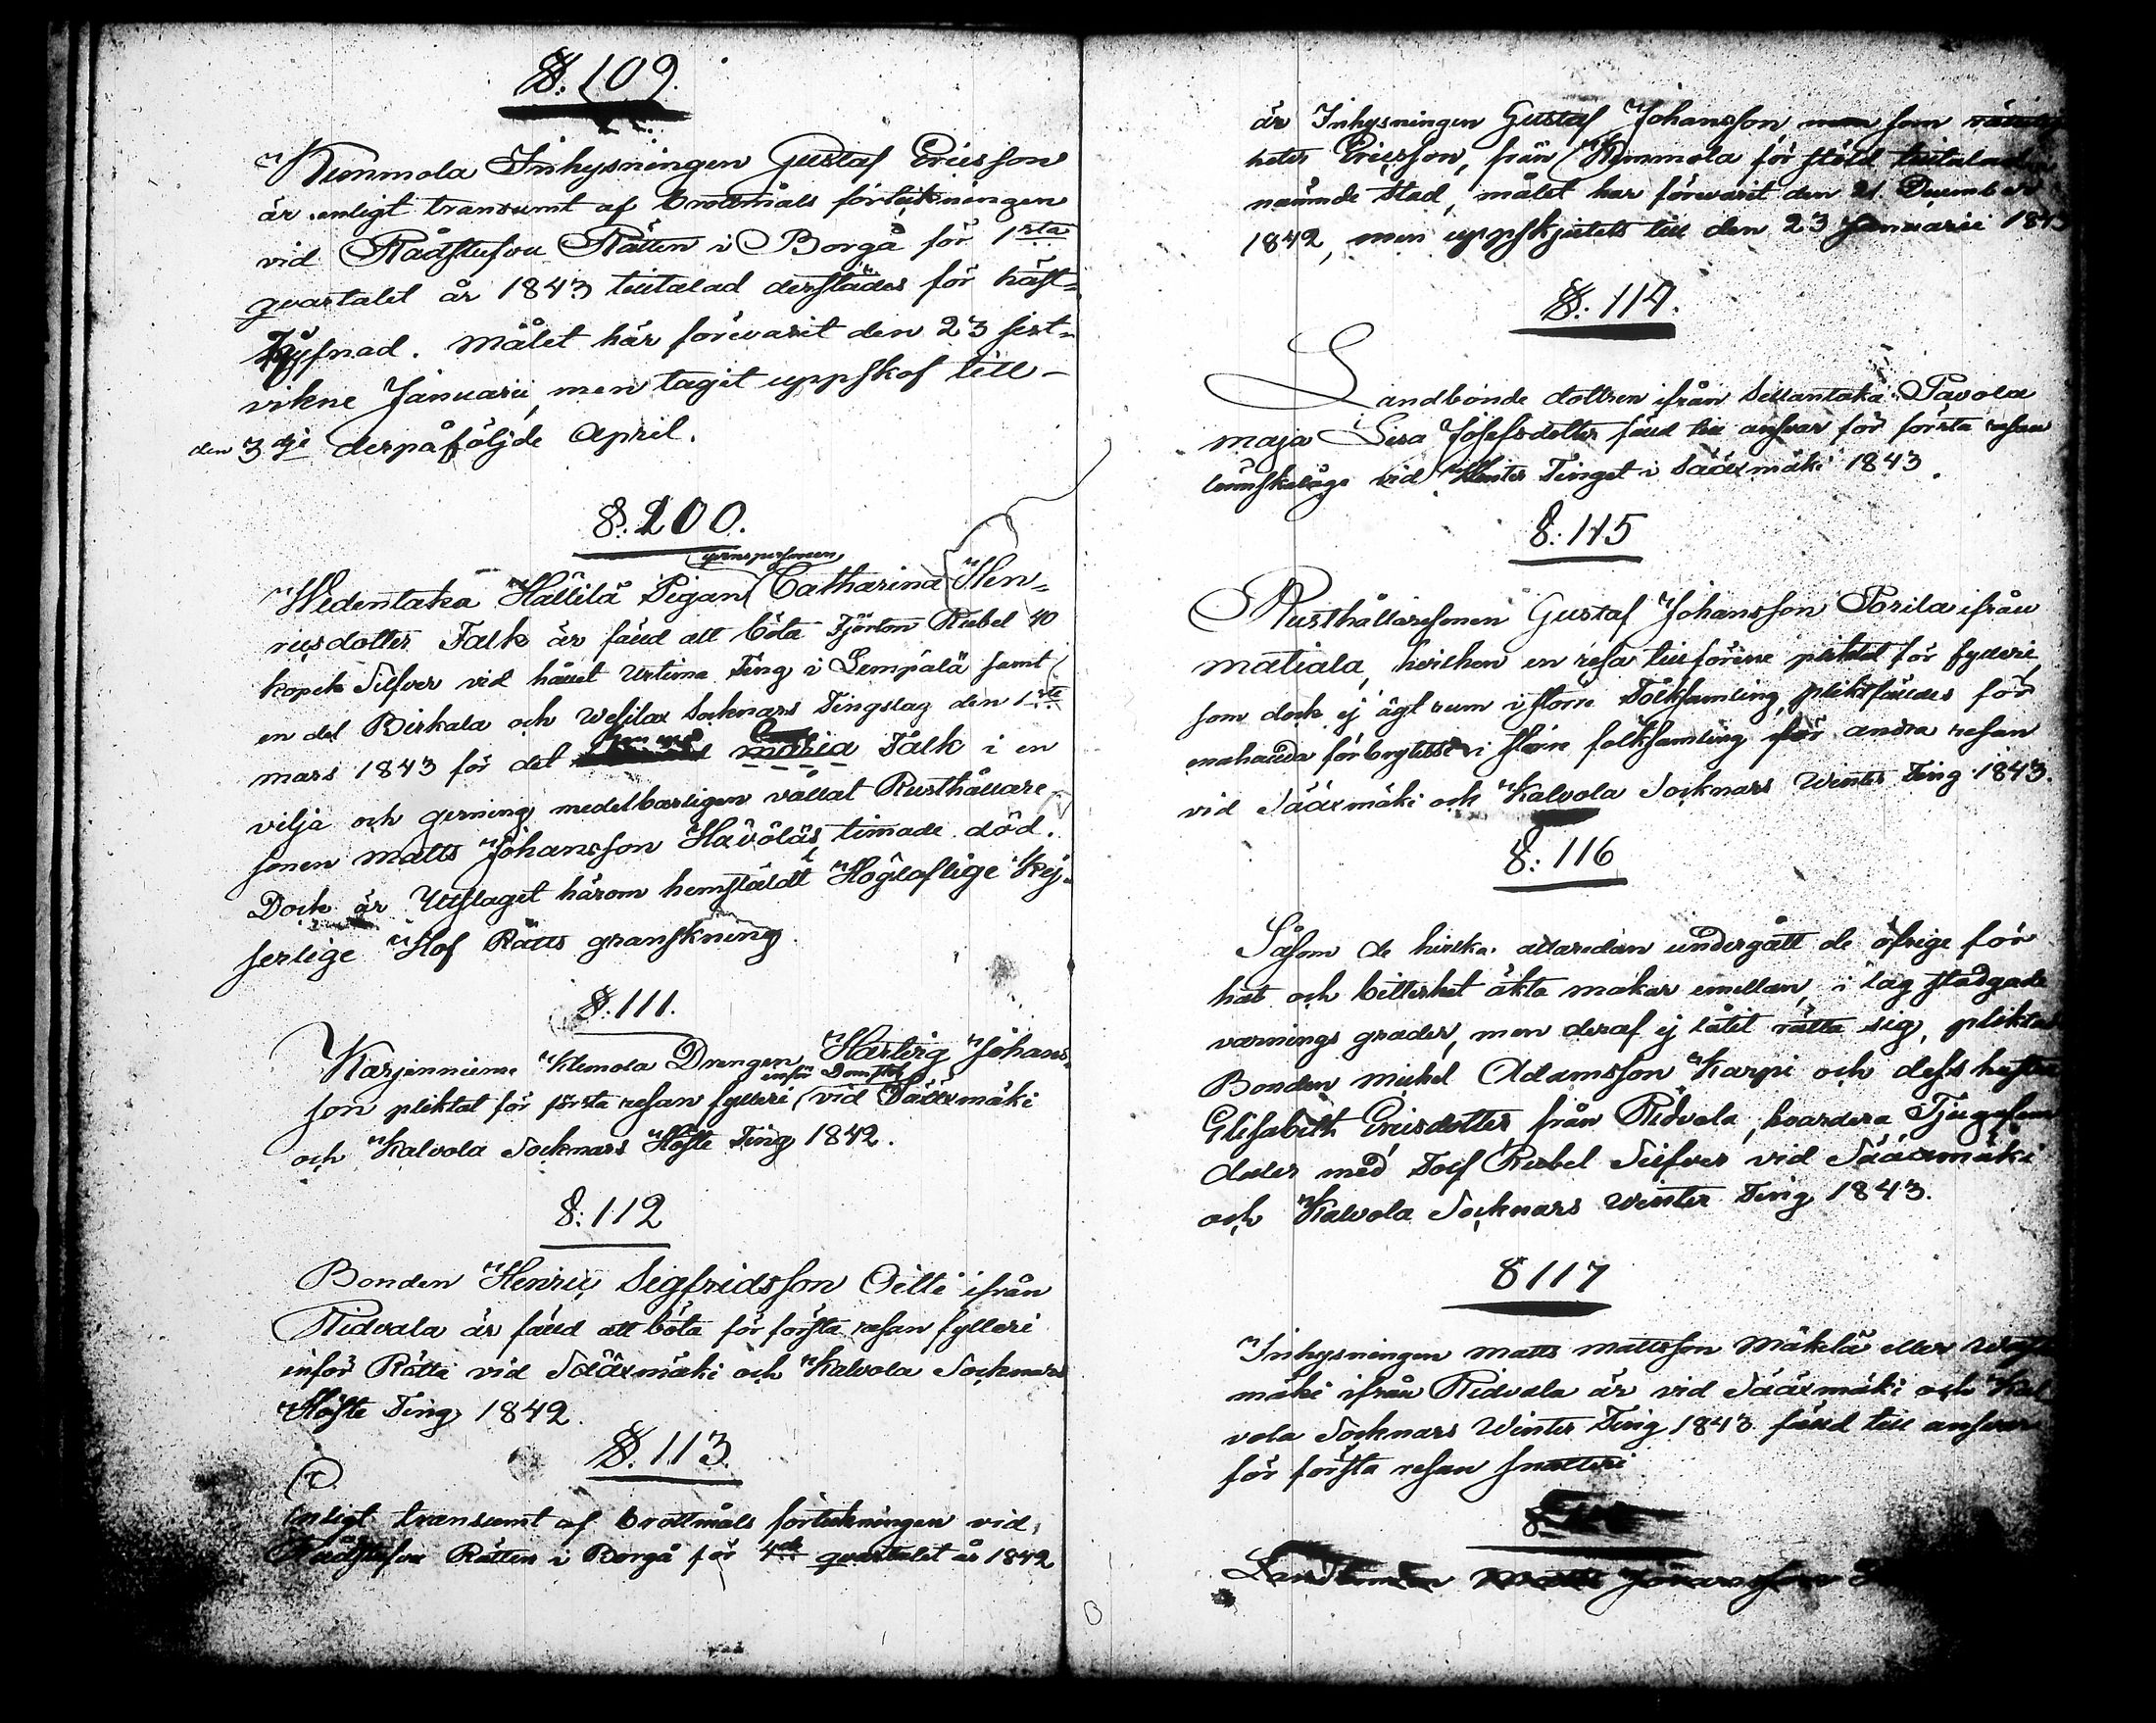 §. 109.
Kemmola Inhysningen Gustaf Ericsson
är enligt transumt af brottmåls förteckningen
vid Rådstufvu Rätten i Borgå för 1sta
qvartalet år 1843 tilltalad derstädes för häst=
tjufnad. Målet här förevarit den 23 sist=
vikne Januarii, men tagit uppskof till
den 3dje derpåföljde April.
§. 200.
Wedentaka Hällilä Pigan Catharina Hen=
ricsdotter Falk är fäld att böta Fjorton Rubel 40
kopek Silfver vid hållet Urtima Ting i Lempälä samt
en del Birkala och Wesilax Socknars Tingslag den 1ste
mars 1843 för det maria Falk i en
vilja och gerning medelbarligen vållat Rusthållare
sonen Matts Johansson Havöläs timade död.
Dock är Utslaget härom hemstäldt Höglaflige Kej=
serlige Hof Rätts granskning.
§. 111.
Karjenniemi Klemola Drengen Hartvig Johans=
son pliktat för första resan fylleri inför Domstol vid Sääxmäki
och Kalvola Socknars Höste Ting 1842.
§. 112
Bonden Henric Sigfridsson Oilti ifrån
Ridvala är fäld att böta för första resan fylleri
inför Rätta vid Sääxmäki och Kalvola Socknars
Höste Ting 1842.
§. 113.
Enligt transumt af brottmåls förteckningen vid
Rådstufvu Rätten i Borgå för 4de qvartalet år 1842
är Inhysningen Gustaf Johansson, som
heter Ericsson, från Kemmola för stöld tilltalad
nämnde stad, målet har förevarit den 21 December
1842, men uppskjutets till den 23 Januarii 1843
§. 114.
Landbonde dottren ifrån Sillantaka Pavola
Maja Lisa Josefsdotter fäld till ansvar för första resan
lönskaläge vid Winter Tinget i Sääxmäki 1843.
§. 115
Rusthållaresonen Gustaf Johansson Porila ifrån
Matiala, hvilken en resa tillförene pliktat för fylleri,
som dock ej ägt rum i större Folksamling, pliktfäldes för
enahanda förbrytelse i större folksamling för andra resan
vid Sääxmäki och Kalvola Socknars Winter Ting 1843.
§. 116
Såsom de hvilka allaredan undergått de öfrige för
hat och bitterhet äkta makar emellan, i lag stadgade
varnings grader, men deraf ej låtit rätta sig, pliktat
Bonden Michel Adamsson Karpi och dess hustru
Elisabeth Ericsdotter från Ridvala, hvardera Tjugufem
daler med Tolf Rubel Silfver vid Sääxmäki
och Kalvola Socknars Winter Ting 1843.
§ 117
Inhysningen Matts Mattsson Mäkelä eller
mäki ifrån Ridvala är vid Sääxmäki och Kal
vola Socknars Winter Ting 1843 fäld till ansvar
för första resan snatteri
§